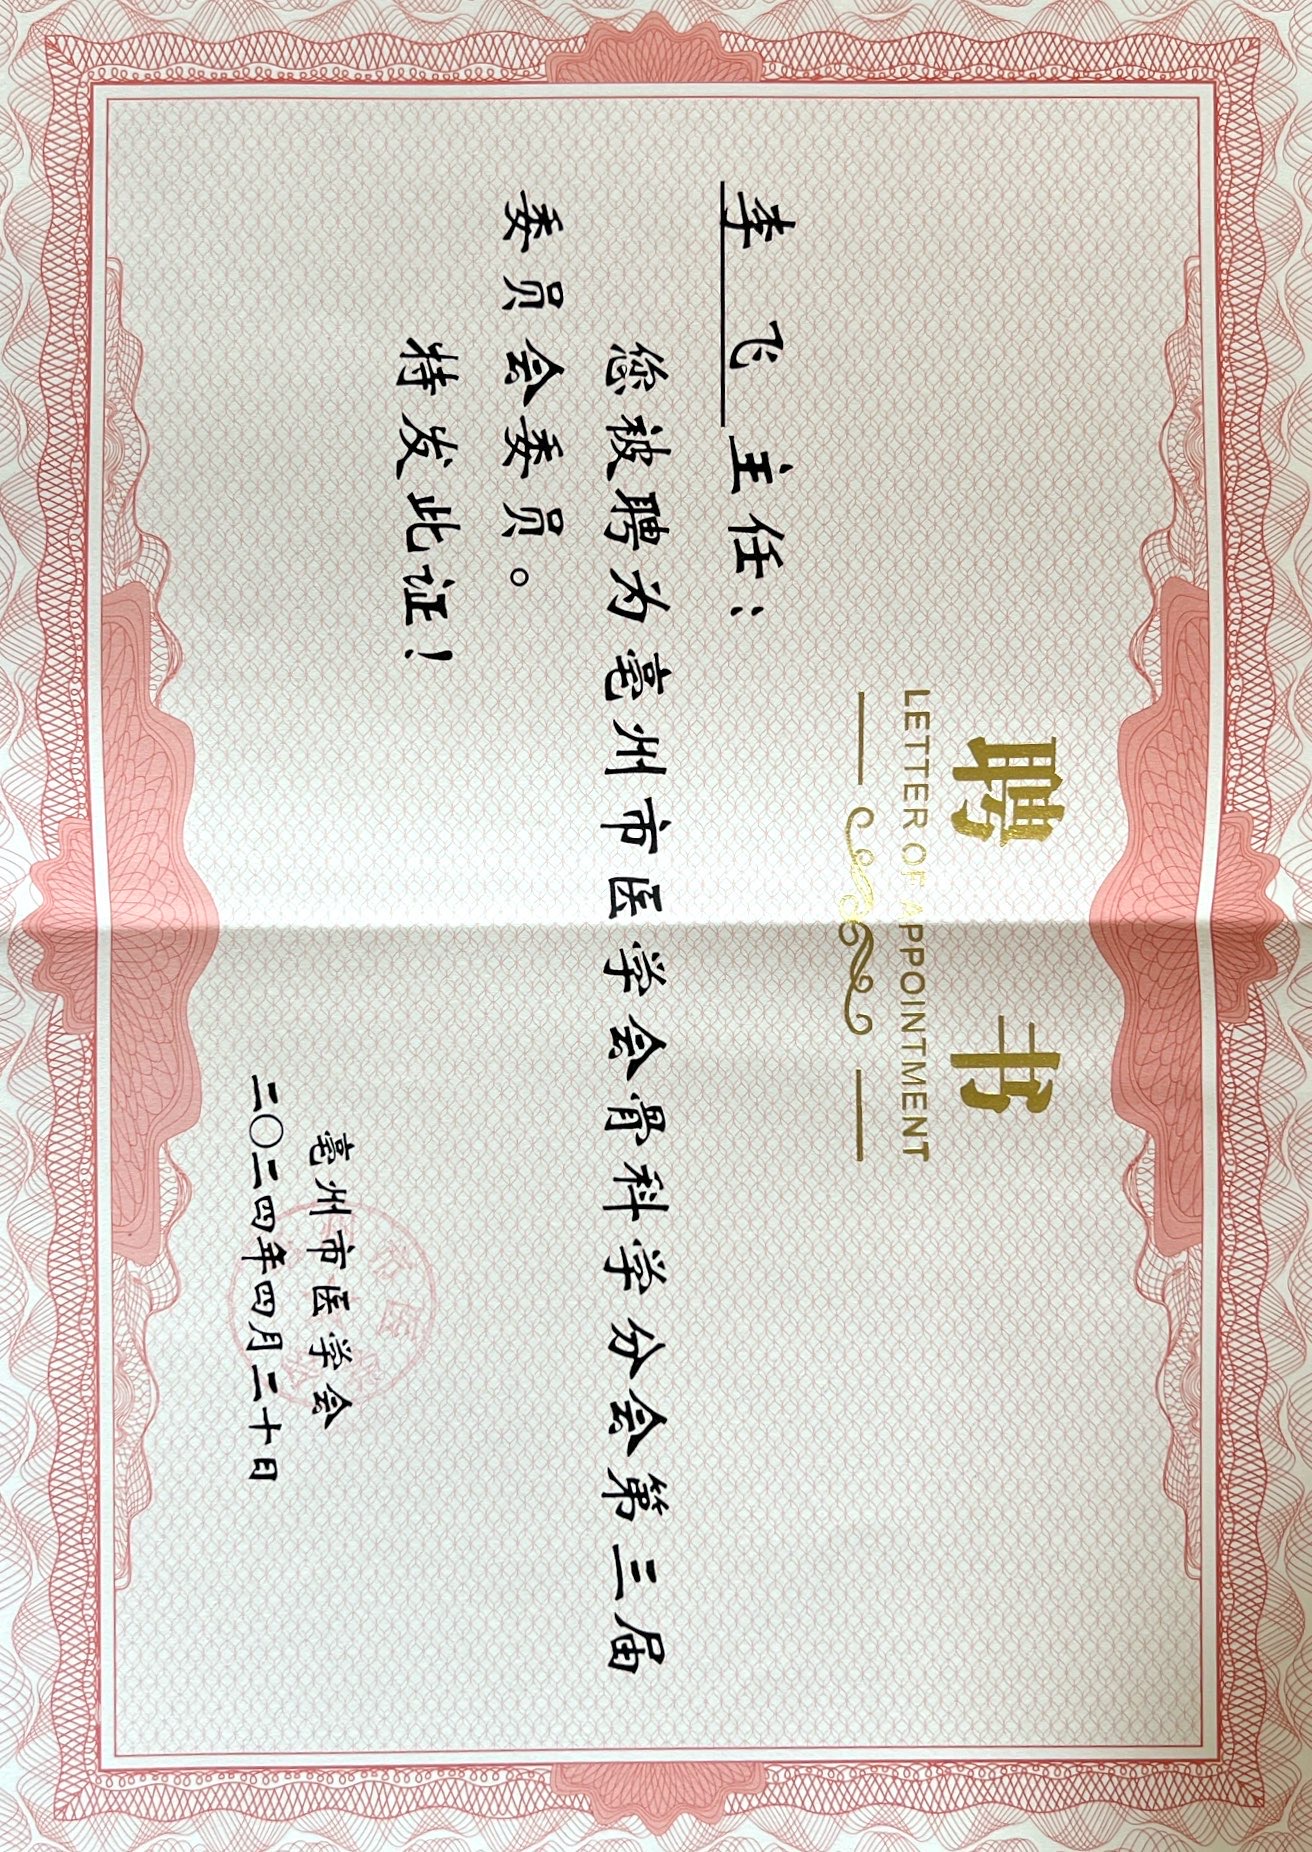 聘书
LETTER OF APPOINTMENT
李飞主任：
您被聘为亳州市医学会骨科学分会第三届
委员会委员。
特发此证！
亳州市医学会
二〇二四年四月二十日